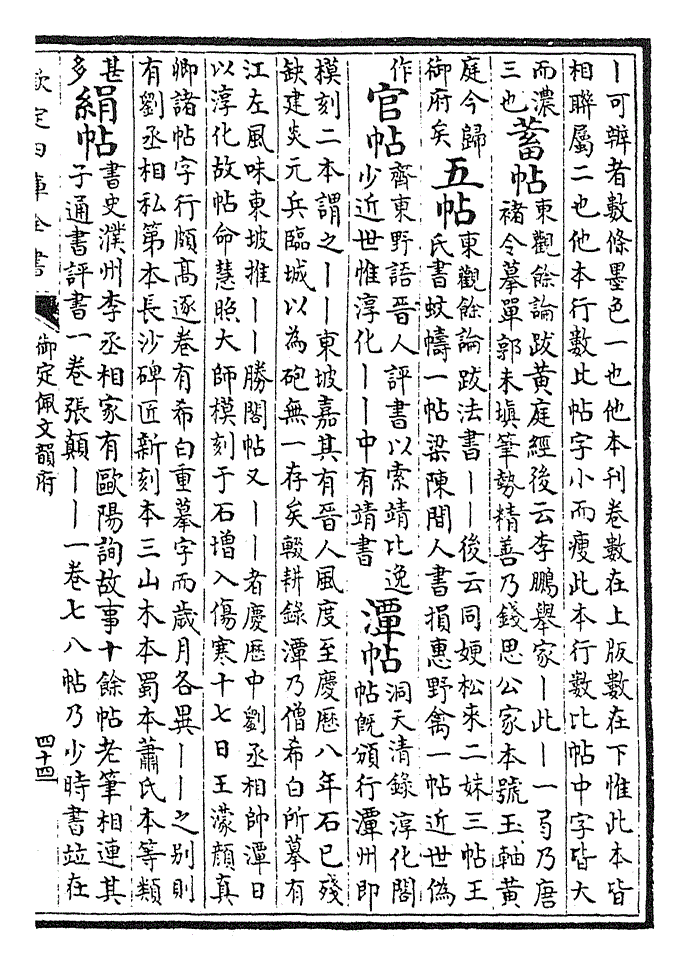 丨可辨者數條墨色一也他本刊卷數在上版數在下惟此本皆
相聯屬二也他本行數比帖字小而瘦此本行數比帖中字皆大
而濃
三也
蓄帖
東觀餘論跋黄庭經後云李鵬舉家丨此丨一弓乃唐
褚令摹單郭未填筆勢精善乃錢思公家本號玉軸黄
庭今歸
御府矣
五帖
東觀餘論跋法書丨丨後云同㛐松來二妹三帖王
氏書蚊幬一帖梁陳間人書損惠野禽一帖近世偽
作
官帖
齊東野語晉人評書以索靖比逸
少近世惟淳化丨丨中有靖書
潭帖
洞天清錄淳化閣
帖既頒行潭州即
模刻二本謂之丨丨東坡嘉其有晉人風度至慶歷八年石已殘
缺建炎元兵臨城以為砲無一存矣輟耕錄潭乃僧希白所摹有
江左風味東坡推丨丨勝閣帖又丨丨者慶歷中劉丞相帥潭日
以淳化故帖命慧照大師模刻于石增入傷寒十七日王濛顔真
卿諸帖字行頗髙逐卷有希白重摹字而歲月各異丨丨之别則
有劉丞相私第本長沙碑匠新刻本三山木本蜀本蕭氏本等類
甚
多
絹帖
書史濮州李丞相家有歐陽詢故事十餘帖老筆相連其
子通書評書一卷張顛丨丨一卷七八帖乃少時書竝在
欽定四庫全書
御定佩文韻府
四十四